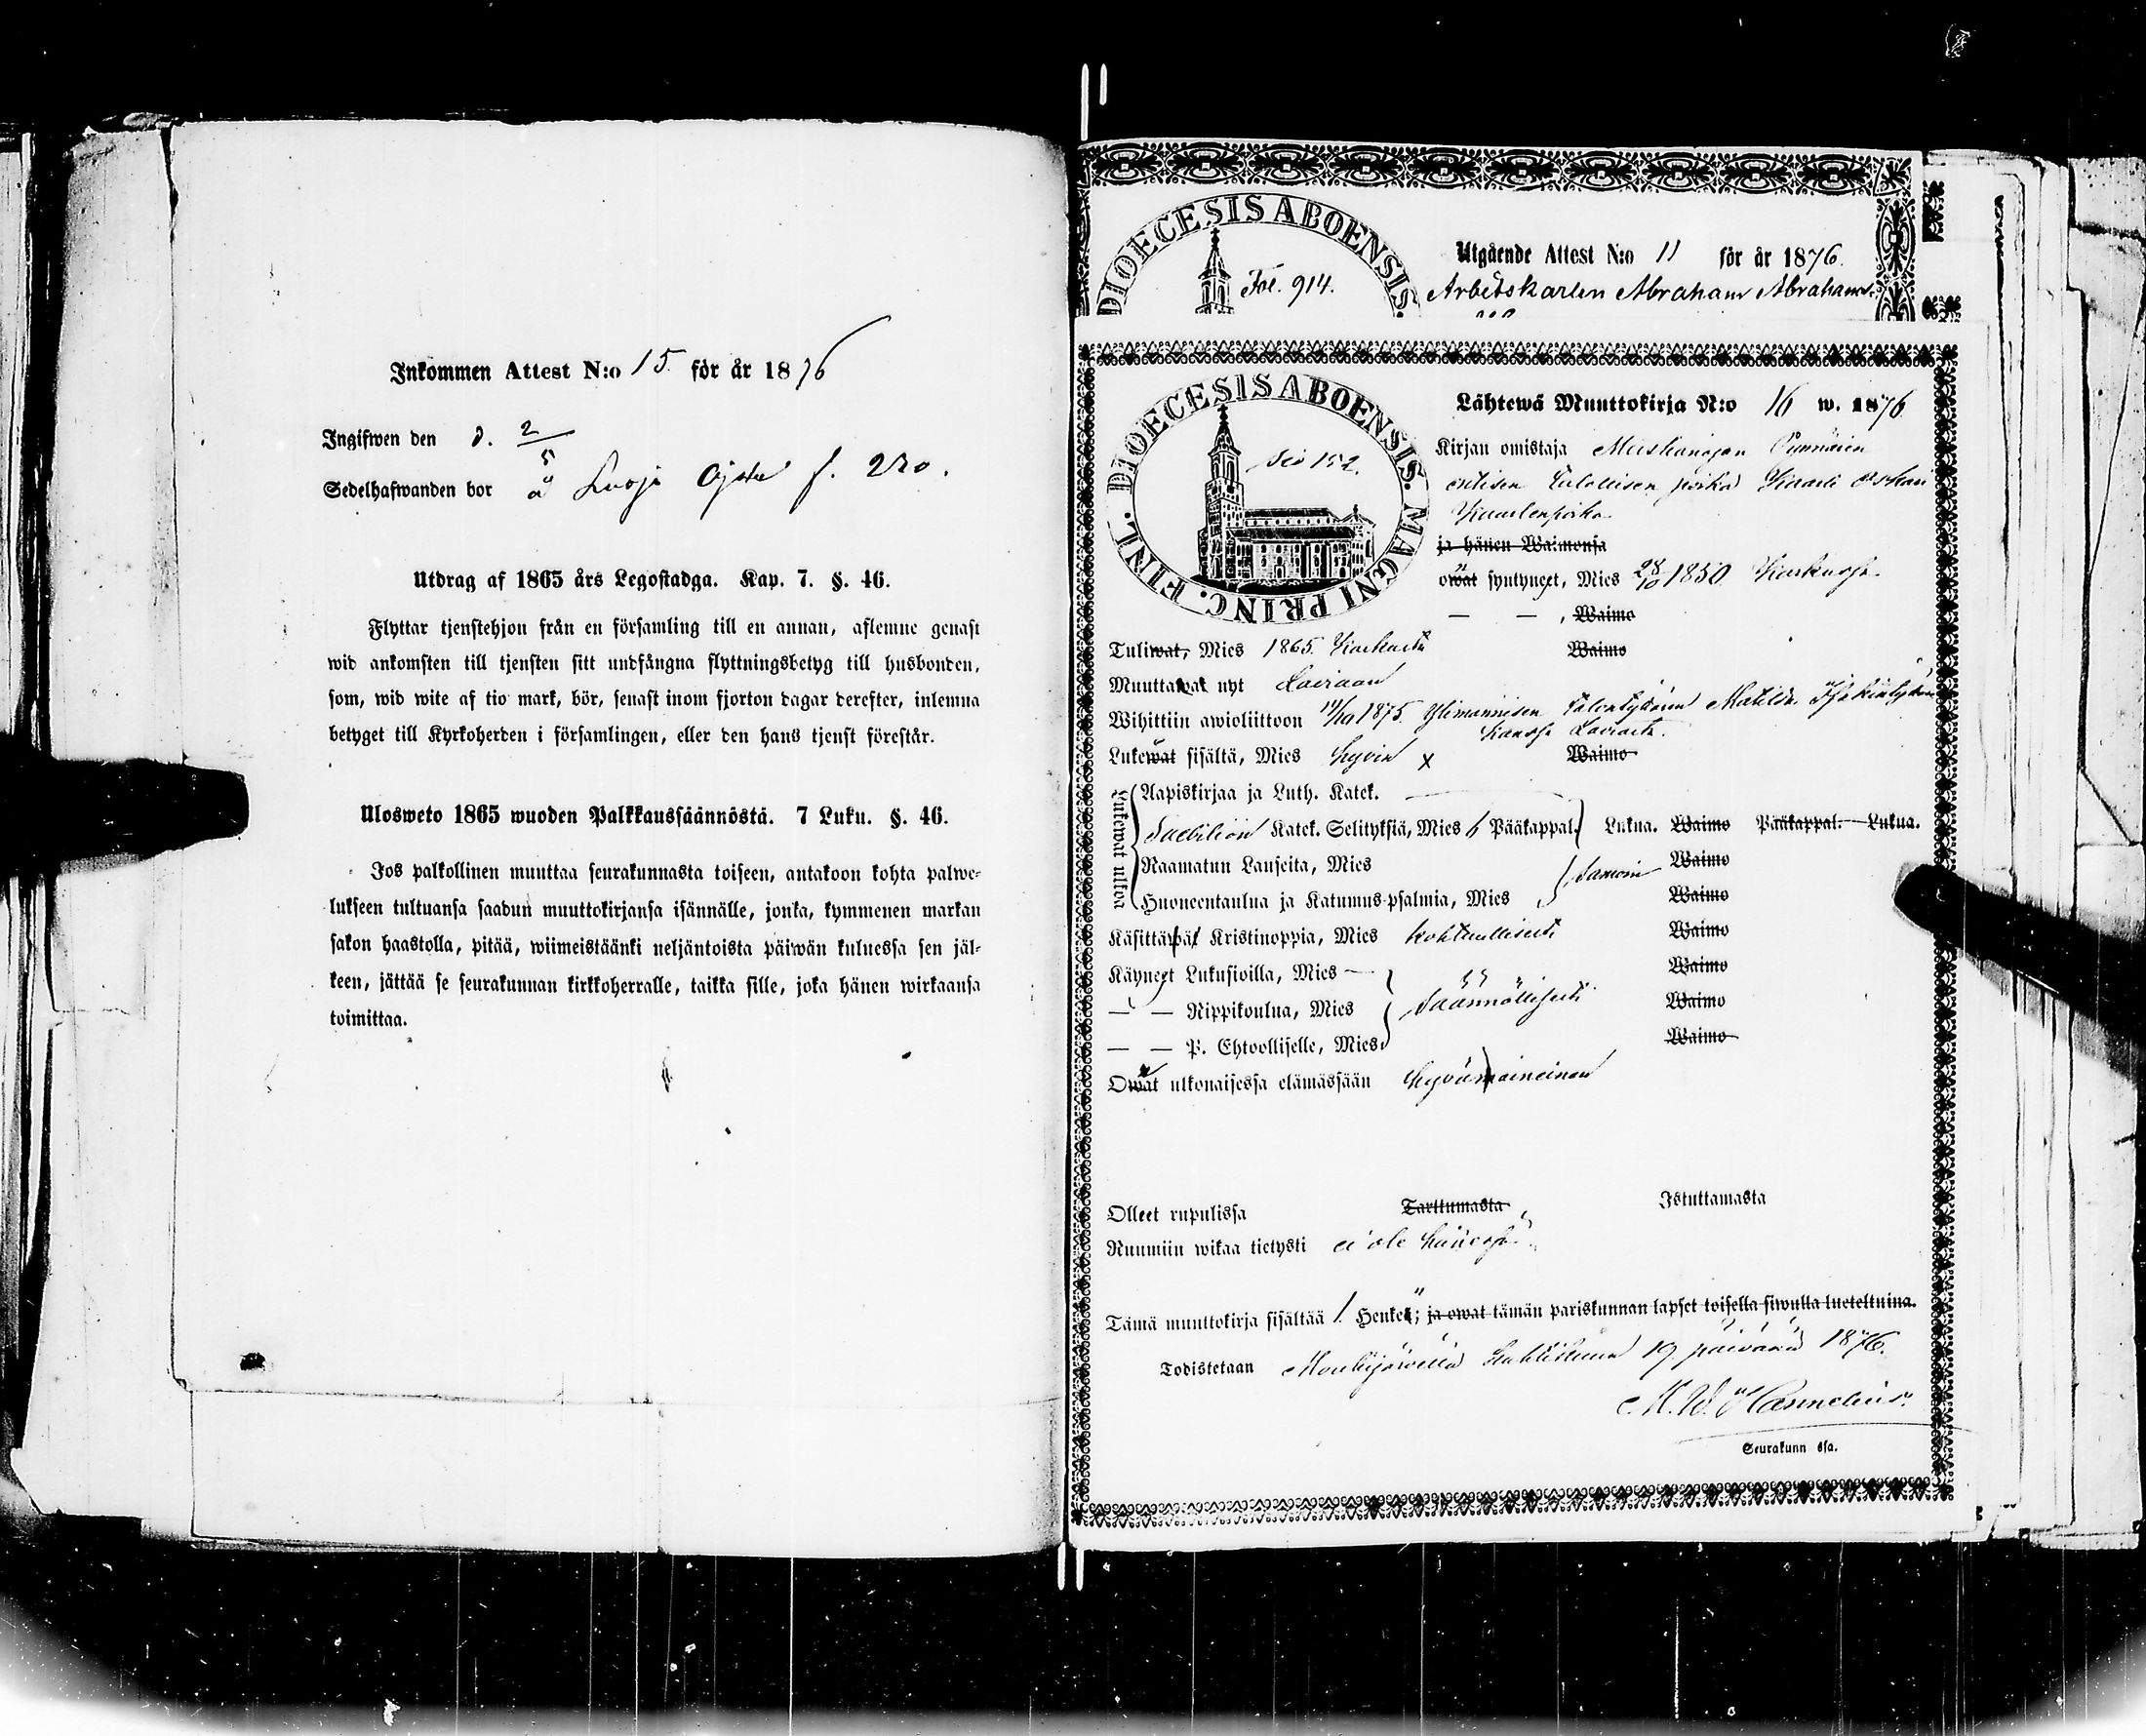 Inkommen Attest N:o 15 för år 1876
Ingifwen den d. 2/5
Sedelhafwanden bor å f. 220.
Utdrag af 1865 års Legostadga. Kap. 7. §. 46.
Flyttar tjenstehjon från en församling till en annan, aflemne genast
wid ankomsten till tjensten sitt undfångna flyttningsbetyg till husbonden,
som, wid wite af tio mark, bör, senast inom fjorton dagar derefter, inlemna
betyget till Kyrkoherden i församlingen, eller den hans tjenst förestår.
Ulosweto 1865 wuoden Palkkaussäännöstä. 7 Luku. §. 46.
Jos palkollinen muuttaa seurakunnasta toiseen, antakoon kohta palwe-
lukseen tultuansa saadun muuttokirjansa isännälle, jonka, kymmenen markan
sakon haastolla, pitää, wiimeistäänki neljäntoista päiwän kuluessa sen jäl-
keen, jättää se seurakunnan kirkkoherralle, taikka sille, joka hänen wirkaansa
toimittaa.
DIOECESIS ABOENSIS.
Fol. 914.
Utgående Attest N:o 11 för år 1876.
Arbetskarlen Abraham Abrahams.
DIOECESIS ABOENSIS. MAGNI PRINC. FINL.
Siv 152.
Lähtewä Muuttokirja N:o 16 w. 1876
Kirjan omistaja
entisen Talollisen poika Kaarle Oskari
Kaarlenpoika
ja hänen Waimonsa
owat syntyneet, Mies 28/10 1850 Karkussa.
— — , Waimo
Tuliwat, Mies 1865. Karkusta Waimo
Muuttawat nyt Laviaan
Wihittiin awioliittoon 1875. Matilda
kanssa Laviasta.
Lukewat sisältä, Mies hyvin x Waimo
Lukewat ulkoa
Aapiskirjaa ja Luth. Katek.
Katek. Selityksiä, Mies 6 Pääkappal. Lukua. Waimo Pääkappal. Lukua.
Raamatun Lauseita, Mies Samoin Waimo
Huoneentaulua ja Katumus-psalmia, Mies Waimo
Käsittäwät Kristinoppia, Mies kohtuullisesti Waimo
Käyneet Lukusioilla, Mies — Waimo
— — Rippikoulua, Mies Säännöllisesti Waimo
— — P. Ehtoolliselle, Mies Waimo
Owat ulkonaisessa elämässään hyvämaineinen
Olleet rupulissa Tarttumasta Istuttamasta
Ruumiin wikaa tietysti ei ole hänessä
Tämä muuttokirja sisältää 1. Henkeä; ja owat tämän pariskunnan lapset toisella siwulla lueteltuina.
Todistetaan Mouhijärvellä Huhtikuun 19 päivänä 1876.
M. W. Hannelius.
Seurakunn ssa.